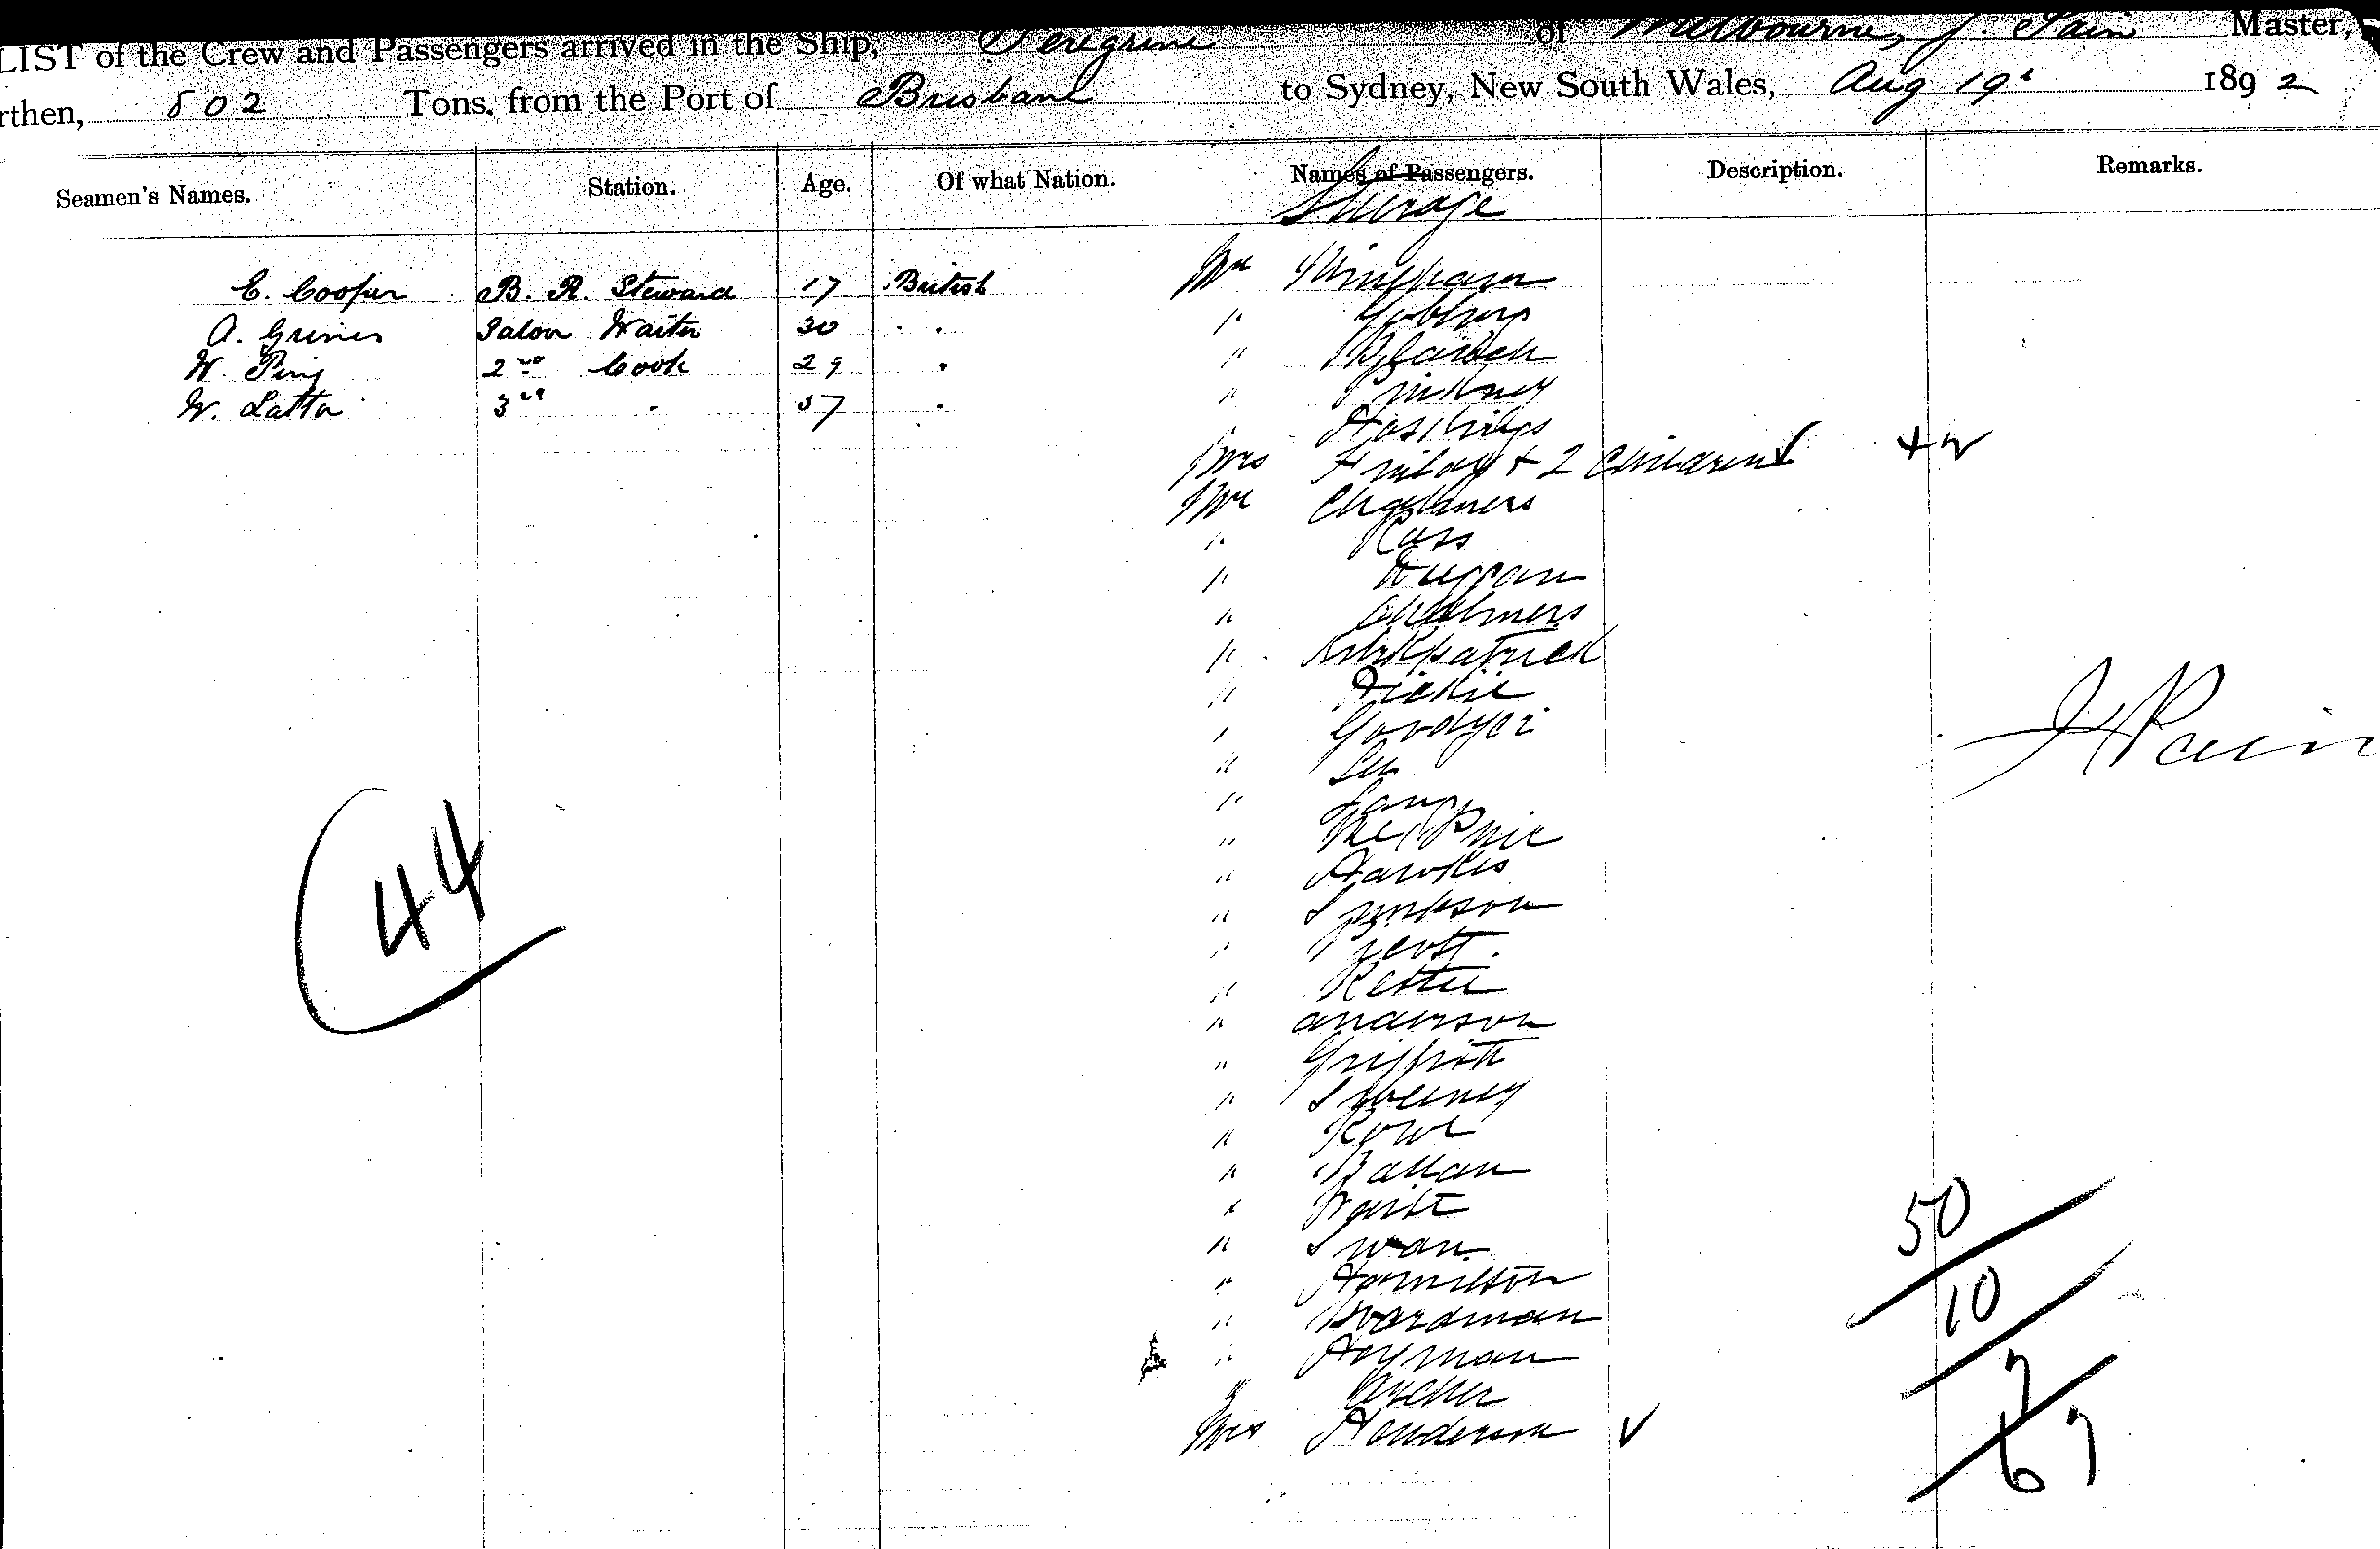 LIST of the Crew and Passengers arrived in the Ship, Peregrine of Melbourne, J. Pain Master,
rthen, 802 Tons, from the Port of Brisbane to Sydney, New South Wales, Aug 19 1892
Seamen's Names. Station. Age. Of what Nation. Names of Passengers. Description. Remarks.
Steerage
E. Cooper B. R. Steward 17 British Mr
A. Grimes Saloon Waiter 30 " "
W. Ping 2nd Cook 29 "
W. Latta 3rd " 57 "
" Pinkney
Hoskings
Mrs + 2 Children
Mr Chalmers
" Ross
" Duggan
" Chalmers
" Kirkpatrick
" Dickie
"
" Lee
" Lang
" McPhie
" Hawkes
"
" Scott.
" Rettie
" Anderson
" Griffith
" Sweeney
" Rowe
" Ballan
" Waite
" Swan
" Hamilton
" Boardman
" Heyman
" Archer
Mrs Henderson
J Pain
44
50
10
7
67